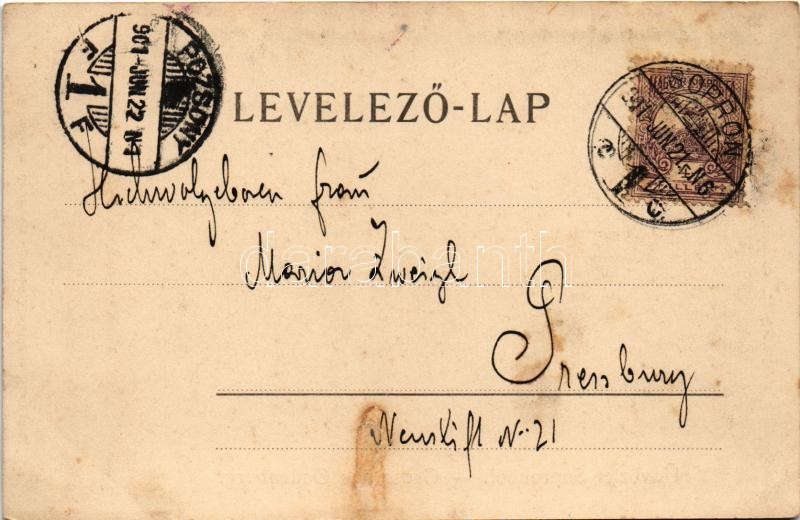 POZSONY
901 JUN 22 N1
F 1 F
LEVELEZŐ-LAP
SOPRON
JUN 22 N6
C 1 C
Hochwolgeboren Frau
Maria Zweigl
Pressburg
Neustift No 21
darabanth